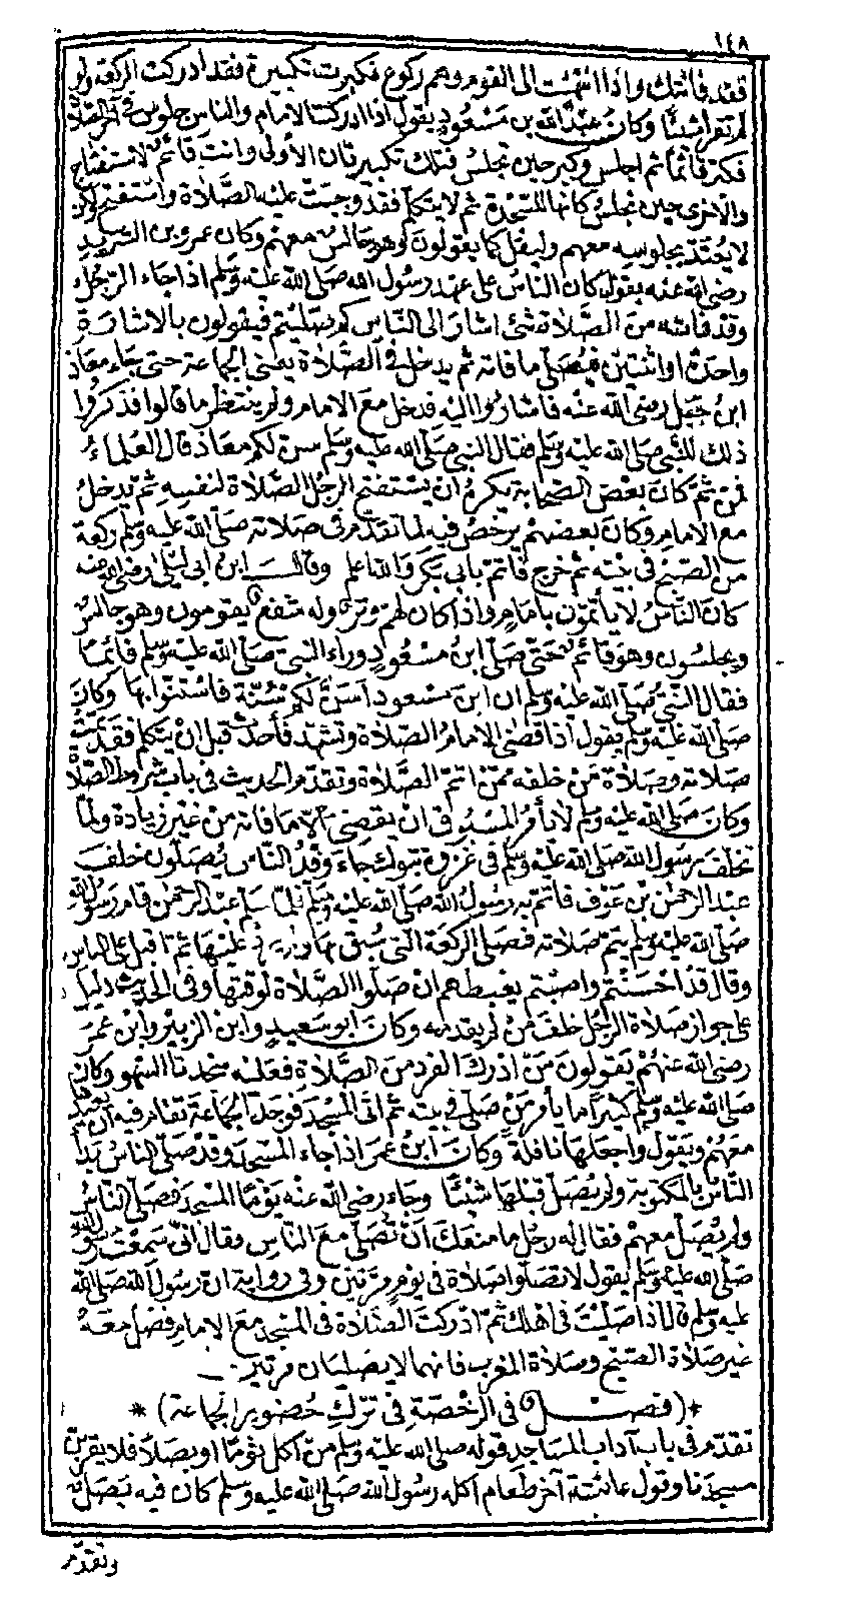 ١٤٨
فقد فاتتك واذا انتهيت الى القوم وهم ركوع فكبرت تكبيرة فقد ادركت الركعة ولو
لم تقرأ شيئا وكان عبد الله بن مسعود يقول اذا ادركت الامام والناس جلوس في آخر الصلاة
فكبر قائما ثم اجلس وكبر حين تجلس فتلك تكبيرتان الأولى وانت قائم لاستفتاح
والاخرى حين تجلس كانها للسجدة ثم لا يتكلم فقد وجبت عليه الصلاة واستفتح لكن
لا يعتد بجلوسه معهم وليقل كما يقولون وهو جالس معهم وكان عمرو بن الشريد
رضي الله عنه يقول كان الناس على عهد رسول الله صلى الله عليه وسلم اذا جاء الرجل
وقد فاته من الصلاة شئ اشار الى الناس كم صليتم فيقولون بالاشارة
واحدة او اثنتين فيصلي ما فاته ثم يدخل في الصلاة يعني الجماعة حتى جاء معاذ
ابن جبل رضي الله عنه فاشاروا اليه فدخل مع الامام ولم ينتظر ما قالوا فذكروا
ذلك للنبي صلى الله عليه وسلم فقال النبي صلى الله عليه وسلم سن لكم معاذ قال العلماء
فمن ثم كان بعض الصحابة يكره ان يستفتح الرجل الصلاة لنفسه ثم يدخل
مع الامام وكان بعضهم يرخص فيه لما تقدم في صلاته صلى الله عليه وسلم ركعة
من الصبح في بيته ثم خرج فأتم بابي بكر والله اعلم وقال ابن ابي ليلى رضي الله عنه
كان الناس لا يأتمون بامام واذا كان لهم وتر وله شفع يقومون وهو جالس
ويجلسون وهو قائم حتى صلى ابن مسعود وراء النبي صلى الله عليه وسلم قائما
فقال النبي صلى الله عليه وسلم ان ابن مسعود اسن لكم سنة فاستنوا بها وكان
صلى الله عليه وسلم يقول اذا قضى الامام الصلاة وتشهد فأحدث قبل ان يتكلم فقد تمت
صلاته وصلاة من خلفه ممن اتم الصلاة وتقدم الحديث في باب شروط الصلاة
وكان صلى الله عليه وسلم لا يأمر المسبوق ان يقضي الا ما فاته من غير زيادة ولما
تخلف رسول الله صلى الله عليه وسلم في غزوة تبوك جاء وقد الناس يصلون خلف
عبد الرحمن بن عوف فأتم به رسول الله صلى الله عليه وسلم فلما سلم عبد الرحمن قام رسول الله
صلى الله عليه وسلم يتم صلاته فصلى الركعة التي سبق بها ولم يزد عليها ثم اقبل على الناس
وقال قد احسنتم واصبتم يغبطهم ان صلوا الصلاة لوقتها وفي الحديث دليل
على جواز صلاة الرجل خلف من لم يقدمه وكان ابو سعيد وابن الزبير وابن عمر
رضي الله عنهم يقولون من ادرك الفرد من الصلاة فعليه سجدتا السهو وكان
صلى الله عليه وسلم كثيرا ما يأمر من صلى في بيته ثم اتى المسجد فوجد الجماعة تقام فيه ان يعيد
معهم ويقول واجعلها نافلة وكان ابن عمر اذا جاء المسجد وقد صلى الناس بدأ
الناس بالمكتوبة ولم يصل قبلها شيئا وجاء رضي الله عنه يوما المسجد فصلى الناس
ولم يصل معهم فقال له رجل ما منعك ان تصلي مع الناس فقال اني سمعت رسول الله
صلى الله عليه وسلم يقول لا تصلوا صلاة في يوم مرتين وفي رواية ان رسول الله صلى الله
عليه وسلم قال اذا صليت في اهلك ثم ادركت الصلاة في المسجد مع الامام فصل معه
غير صلاة الصبح وصلاة المغرب فانهما لا يصليان مرتين
*(فصل في الرخصة في ترك حضور الجماعة)*
تقدم في باب آداب المساجد قوله صلى الله عليه وسلم من أكل ثوما او بصلا فلا يقربن
مسجدنا وقول عائشة آخر طعام اكله رسول الله صلى الله عليه وسلم كان فيه بصل
وتقدم